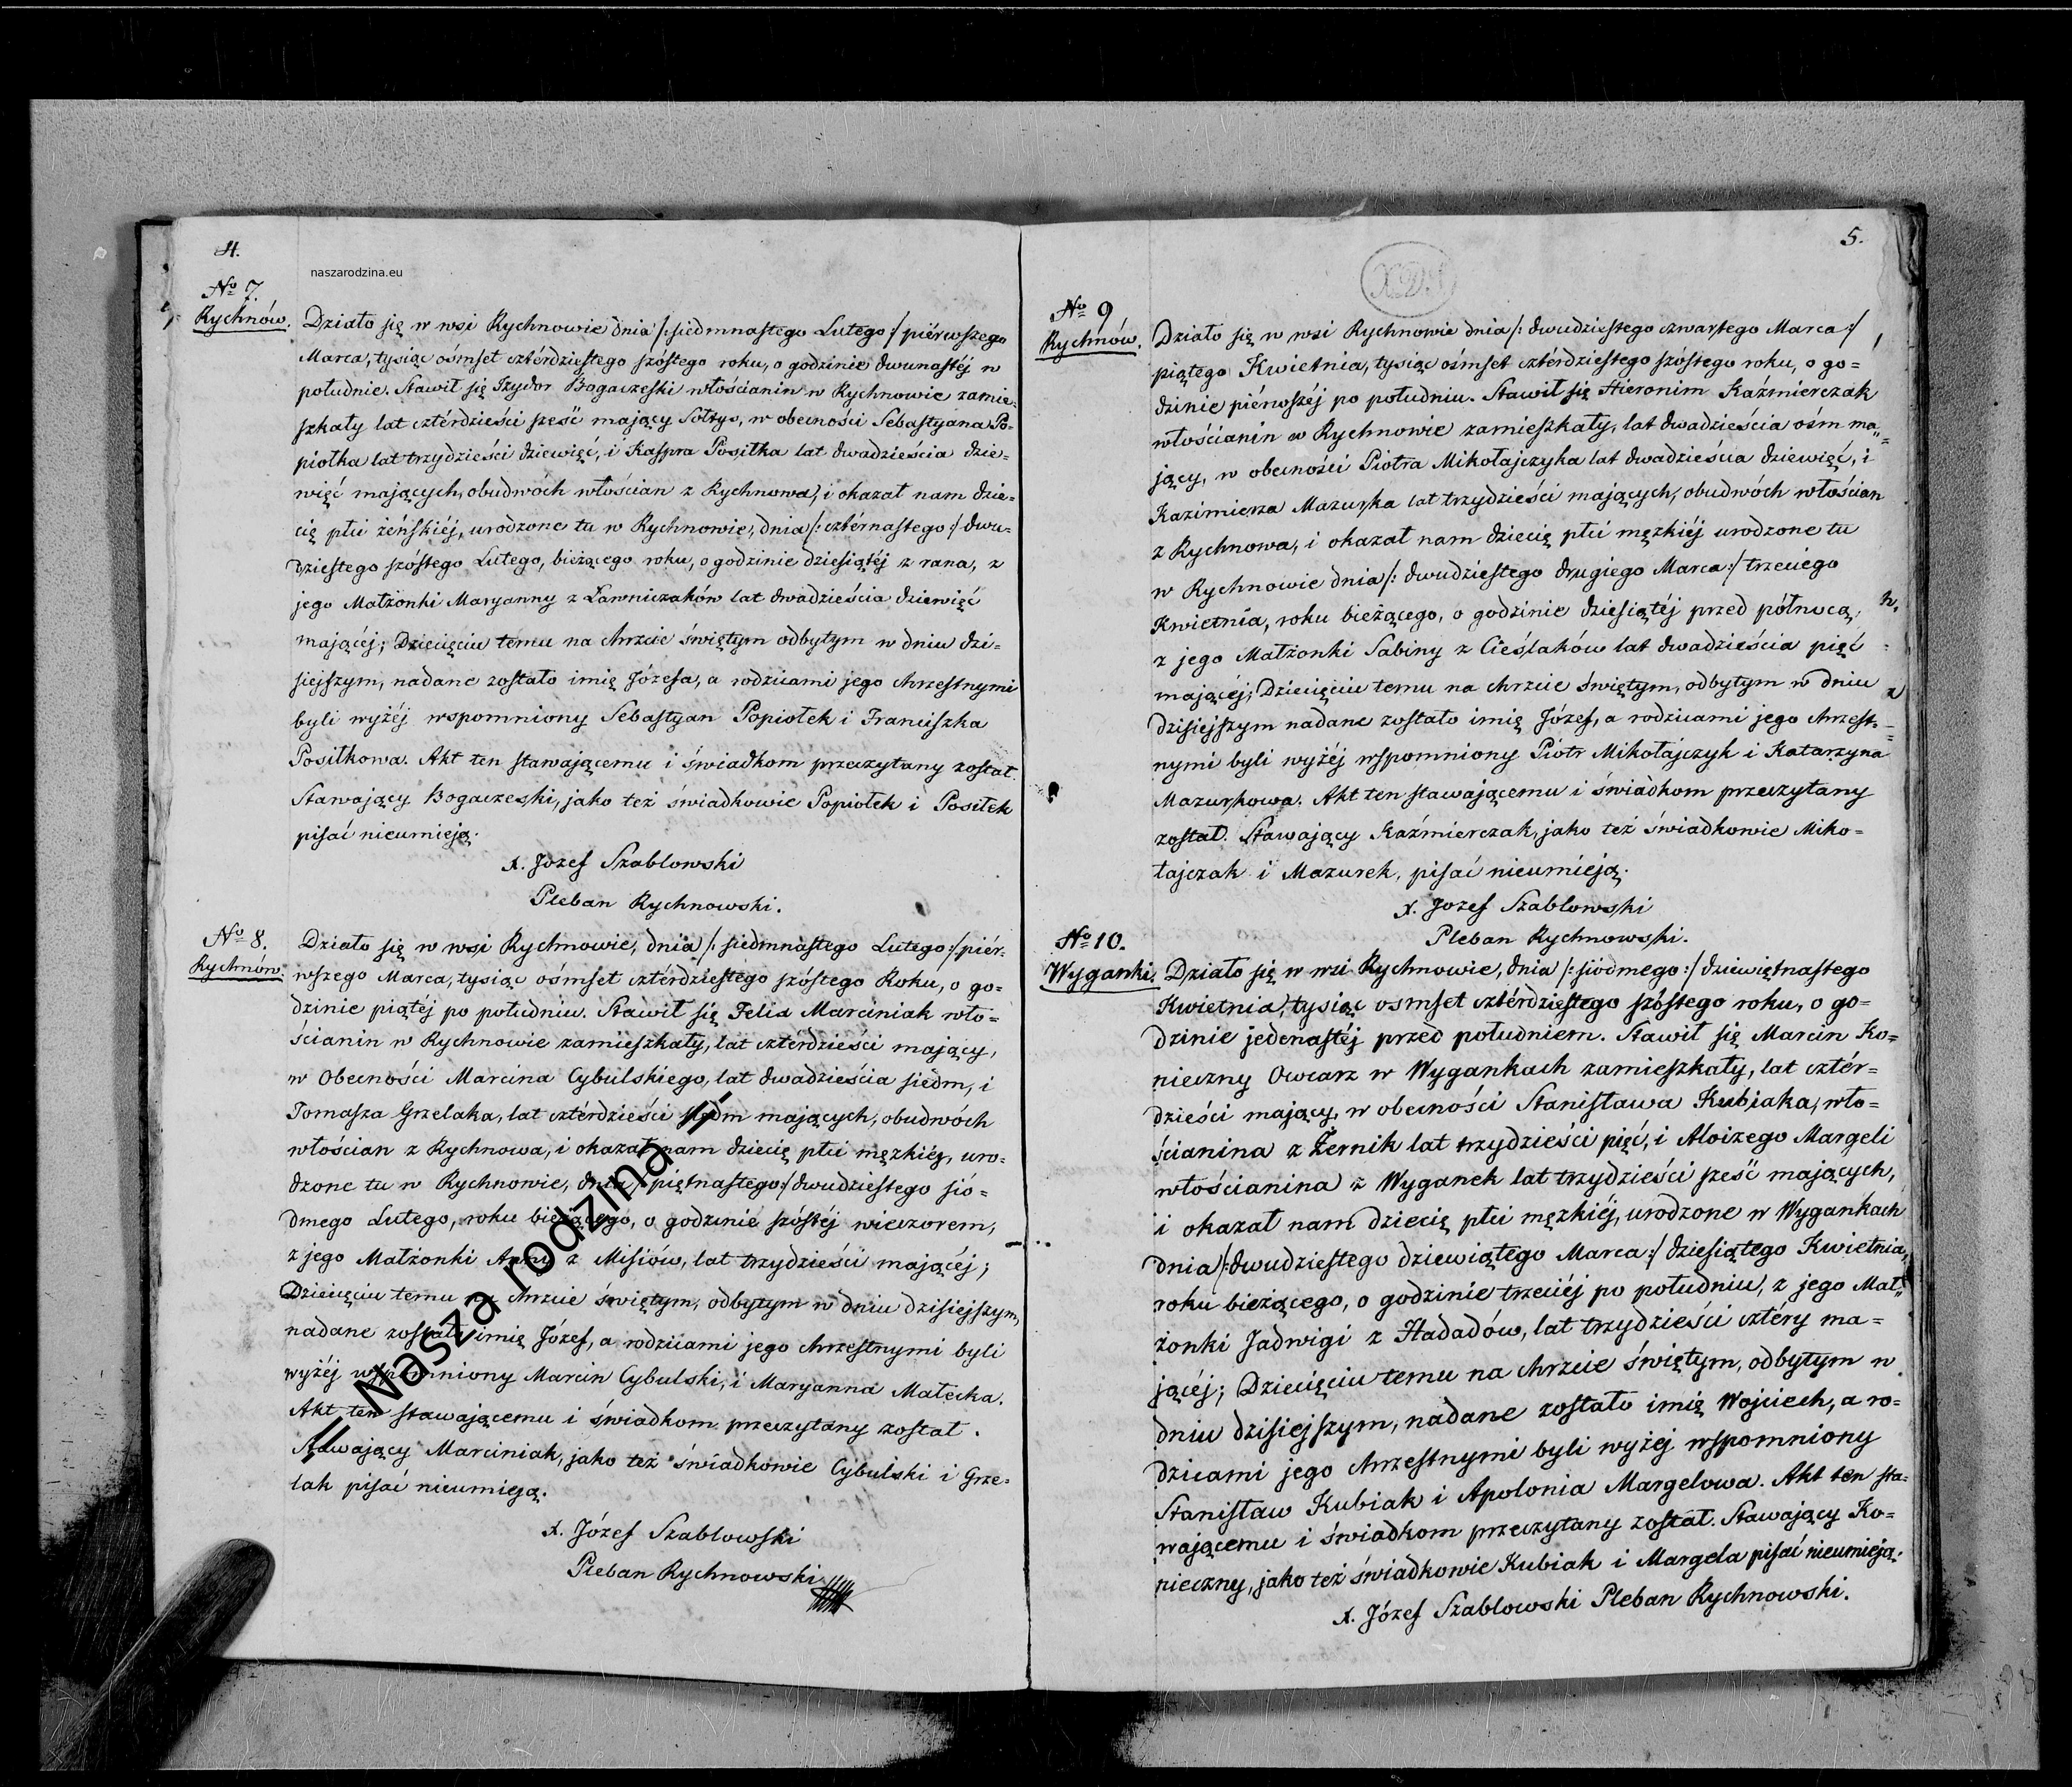 4.
naszarodzina.eu
No 7.
Rychnów.
Działo się w wsi Rychnowie dnia /: siedmnastego Lutego :/ piérwszego
Marca, tysiąc ośmset cztérdziestego szóstego roku, o godzinie dwunastéj w
południe. Stawił się Izydor Bogaczeski włościanin w Rychnowie zamie=
szkały lat cztérdzieści sześć mający Sołtys, w obecności Sebastyana Po=
piołka lat trzydzieści dziewięć, i Kaspra Posiłka lat dwadzieścia dzie=
więć mających, obudwóch włościan z Rychnowa, i okazał nam dzie=
cię płci żeńskiéj, urodzone tu w Rychnowie, dnia /: cztérnastego :/ dwu=
dziestego szóstego Lutego, bieżącego roku, o godzinie dziesiątéj z rana, z
jego Małżonki Maryanny z Ławniczaków lat dwadzieścia dziewięć
mającéj; Dziecięciu temu na chrzcie świętym odbytym w dniu dzi=
siejszym, nadane zostało imię Józefa, a rodzicami jego chrzestnymi
byli wyżéj wspomniony Sebastyan Popiołek i Franciszka
Posiłkowa. Akt ten stawającemu i świadkom przeczytany został.
Stawający Bogaczeski, jako też świadkowie Popiołek i Posiłek
pisać nieumieją.
X. Jozef Szablowski
Pleban Rychnowski.
No 8.
Rychnów.
Działo się w wsi Rychnowie, dnia /: siedmnastego Lutego :/ piér=
wszego Marca, tysiąc ośmset cztérdziestego szóstego Roku, o go=
dzinie piątéj po południu. Stawił się Felix Marciniak wło=
ścianin w Rychnowie zamieszkały, lat czterdzieści mający,
w Obecności Marcina Cybulskiego, lat dwadzieścia siedm, i
Tomasza Grzelaka, lat cztérdzieści siedm mających, obudwóch
włościan z Rychnowa, i okazał nam dziecię płci męzkiéj, uro=
dzone tu w Rychnowie, dnia /: piętnastego :/ dwudziestego sió=
dmego Lutego, roku bieżącego, o godzinie szóstéj wieczorem,
z jego Małżonki Anny z Misiów, lat trzydzieści mającéj;
Dziecięciu temu na chrzcie świętym, odbytym w dniu dzisiejszym,
nadane zostało imię Józef, a rodzicami jego chrzestnymi byli
wyżéj wspomniony Marcin Cybulski, i Maryanna Małecka.
Akt ten stawającemu i świadkom przeczytany został.
Stawający Marciniak, jako też świadkowie Cybulski i Grze=
lak pisać nieumieją.
X. Józef Szablowski
Pleban Rychnowski
|| Nasza rodzina ||
5.
No 9
Rychnów.
Działo się w wsi Rychnowie dnia /: dwudziestego czwartego Marca :/
piątego Kwietnia, tysiąc ośmset cztérdziestego szóstego roku, o go=
dzinie piérwszéj po południu. Stawił się Hieronim Kaźmierczak
włościanin w Rychnowie zamieszkały, lat dwadzieścia ośm ma=
jący, w obecności Piotra Mikołajczyka lat dwadzieścia dziewięć, i
Kazimierza Mazurka lat trzydzieści mających, obudwóch włościan
z Rychnowa, i okazał nam dziecię płci męzkiéj urodzone tu
w Rychnowie dnia /: dwudziestego drugiego Marca :/ trzeciego
Kwietnia, roku bieżącego, o godzinie dziesiątéj przed północą,
z jego Małżonki Sabiny z Cieślaków lat dwadzieścia pięć
mającéj; Dziecięciu temu na chrzcie świętym, odbytym w dniu
dzisiejszym nadane zostało imię Józef, a rodzicami jego chrzest=
nymi byli wyżéj wspomniony Piotr Mikołajczyk i Katarzyna
Mazurkowa. Akt ten stawającemu i świadkom przeczytany
został. Stawający Kaźmierczak, jako też świadkowie Miko=
łajczak i Mazurek, pisać nieumieją.
X. Jozef Szablowski
Pleban Rychnowski.
No 10.
Wyganki.
Działo się w wsi Rychnowie, dnia /: siódmego :/ dziewiętnastego
Kwietnia, tysiąc osmset cztérdziestego szóstego roku, o go=
dzinie jedenastéj przed południem. Stawił się Marcin Ko=
nieczny Owczarz w Wygankach zamieszkały, lat cztér=
dzieści mający, w obecności Stanisława Kubiaka, wło=
ścianina z Żernik lat trzydzieści pięć, i Aloizego Margeli
włościanina z Wyganek lat trzydzieści sześć mających,
i okazał nam dziecię płci męzkiéj, urodzone w Wygankach
dnia /: dwudziestego dziewiątego Marca :/ dziesiątego Kwietnia,
roku bieżącego, o godzinie trzeciéj po południu, z jego Mał=
żonki Jadwigi z Hadadów, lat trzydzieści cztéry ma=
jącéj; Dziecięciu temu na chrzcie świętym, odbytym w
dniu dzisiejszym, nadane zostało imię Wojciech, a ro=
dzicami jego chrzestnymi byli wyżej wspomniony
Stanisław Kubiak i Apolonia Margelowa. Akt ten sta=
wającemu i świadkom przeczytany został. Stawający Ko=
nieczny, jako też świadkowie Kubiak i Margela pisać nieumieją.
X. Józef Szablowski Pleban Rychnowski.